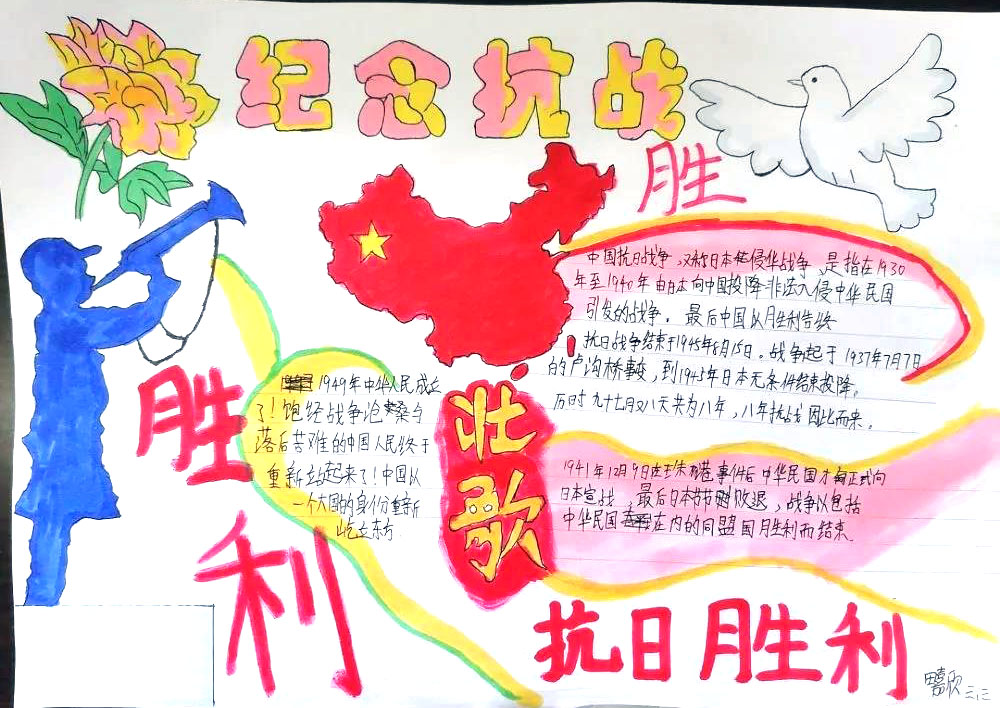 纪念抗战
胜
中国抗日战争,又称日本侵华战争,是指在1930
年至1940年由日本向中国投降非法入侵中华民国
引发的战争。最后中国以胜利告终
抗日战争结束于1945年8月15日。战争起于1937年7月7日
的卢沟桥事变,到1945年日本无条件结束投降。
历时九十七月又八天共为八年,八年抗战因此而来。
胜
利
1949年中华人民成立
了!饱经战争沧桑与
落后苦难的中国人民终于
重新站起来了!中国以
一个大国的身份重新
屹立东方.
壮
歌
1941年12月9日在珍珠港事件后中华民国才正式向
日本宣战,最后日本节节败退,战争以包括
中华民国在内的同盟国胜利而结束.
抗日胜利
三.三